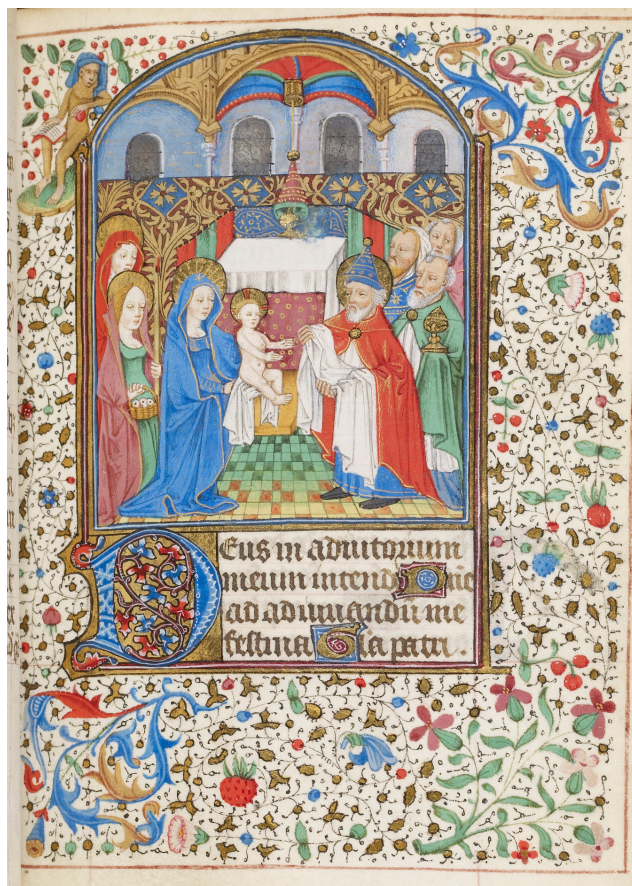 Deus in adiutorium
meum intende Dn̄e
ad adiuuandū me
festina Gl̄ia patri.